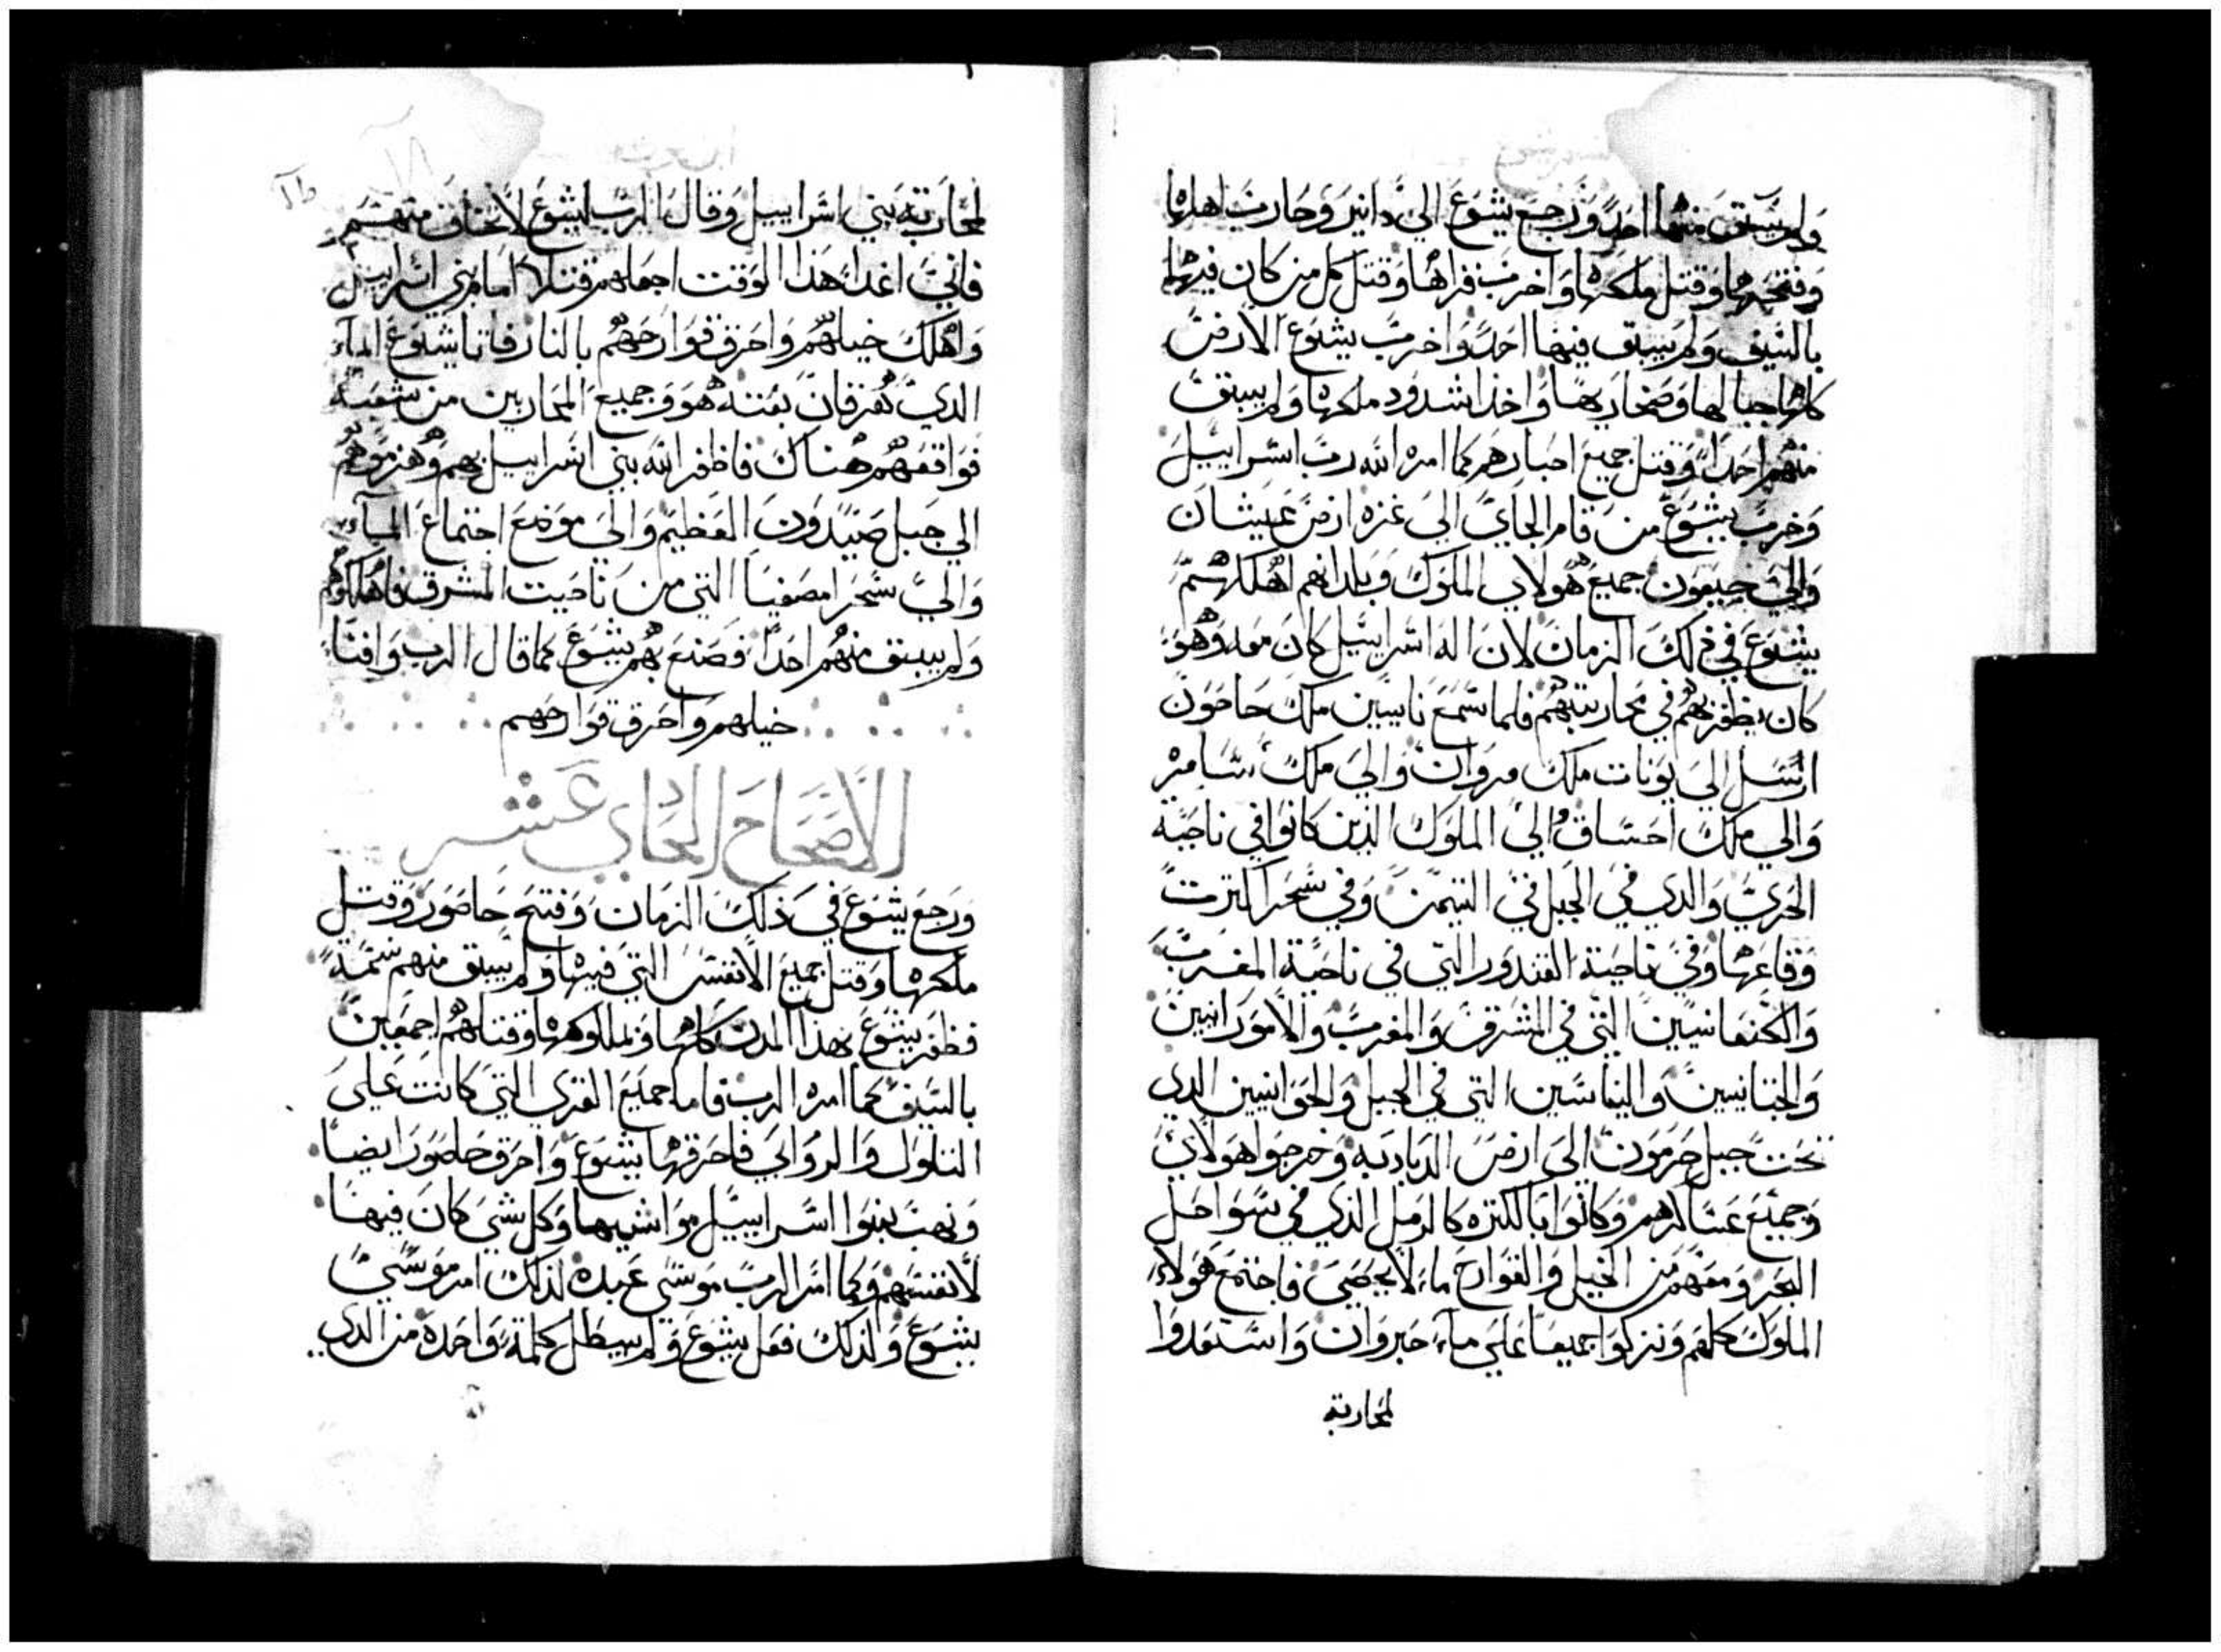 ولم يبق منها احد ورجع يشوع الي دابير وحارب اهلها
وفتحها وقتل ملكها واخرب قراها وقتل كل من كان فيها
بالسيف ولم يبق فيها احد واخرب يشوع الارض
كلها جبالها وصحاريها واخذ اشدود ملكها ولم يبق
منهم احدا وقتل جميع احبارهم كما امره الله رب اسراييل
وخرب يشوع من رقام الجاي الي غزه ارض عيشان
والي جبعون جميع هولاي الملوك وبلدانهم اهلكهم
يشوع في ذلك الزمان لان اله اسراييل كان معه وهو
كان يظفر بهم في محاربتهم فلما سمع نابيين ملك حاصون
ارسل الي يونات ملك مروان والي ملك سامر
والي ملك احساف والي الملوك الذين كانوا في ناحية
الحري والدي في الجبل في التيمن وفي سحرا كنرت
وقاعها وفي ناحية القندور التي في ناحية المغرب
والكنعانيين التي في المشرق والمغرب والامورانيين
والجتانيين واليباسين التي في الجبل والحوانيين الدي
تحت جبل حرمون الي ارض الدبادبه وخرجوا هولاي
وجميع عساكرهم وكانوا بالكتره كالرمل الذي في سواحل
البحر ومعهم من الخيل والقوارح ما لا يحصي فاجتمع هولاء
الملوك كلهم ونزلوا جميعا علي ماء حبروان واستعدوا
لمحاربة
لمحاربة بني اسراييل وقال الرب ليشوع لا تخاف منهم
فاني اغدا هذا الوقت اجعلهم قتلا امام بني اسراييل
واهلك خيلهم واحرق قوارحهم بالنار فاتا يشوع الماء
الدي تفرقان بغتة هو وجميع المحاربين من شعبه
فواقعهم هناك فاظفر الله بني اسراييل بهم وهزموهم
الي جبل صيدون العظيم والي موضع اجتماع المياء
والي سحرا مصفيا التي من ناحيت المشرق فاهلكوهم
ولم يبق منهم احدا فصنع بهم يشوع كما قال الرب وافنا
خيلهم واحرق قوارحهم
الاصحاح الحادي عشر
ورجع يشوع في ذلك الزمان وفتح حاصور وقتل
ملكها وقتل جميع الانفس التي فيها ولم يبق منهم نسمة
فظفر يشوع بهذا المدن كلها وبملوكها وقتلهم اجمعين
بالسيف كما امره الرب فاما جميع القري التي كانت علي
التلول والروابي فاحرقها يشوع واحرق حاصور ايضا
ونهب بنوا اسراييل مواشيها وكل شي كان فيها
لانفسهم وكما امر الرب موسي عبده لذلك امر موسي
يشوع ولذلك فعل يشوع ولم يبطل كلمة واحدة من الدي